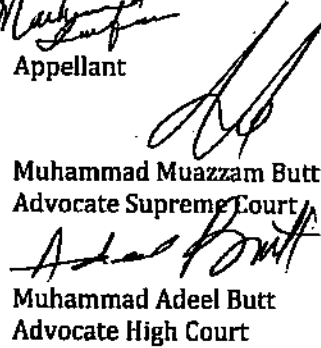 Appellant
Muhammad Muazzam Butt
Advocate Supreme Court
Adeel Butt
Muhammad Adeel Butt
Advocate High Court